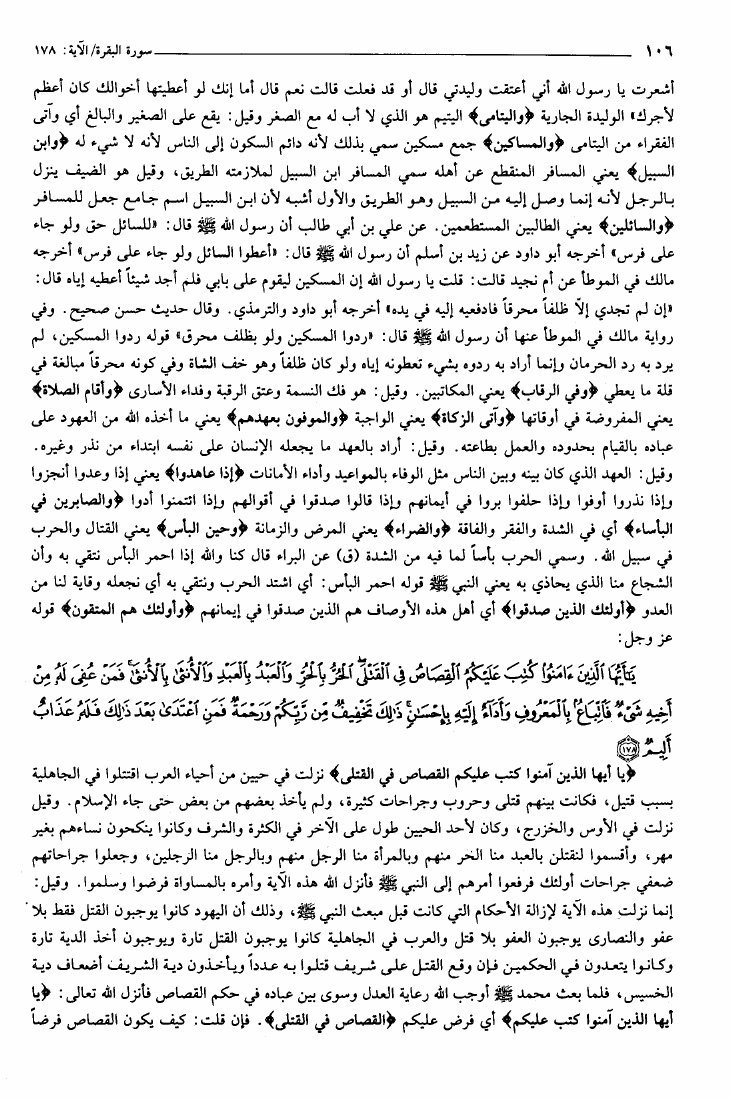 ١٠٦ سورة البقرة/ الآية: ١٧٨
أشعرت يا رسول الله أني أعتقت وليدتي قال أو قد فعلت قالت نعم قال أما إنك لو أعطيتها أخوالك كان أعظم
لأجرك» الوليدة الجارية ﴿واليتامى﴾ اليتيم هو الذي لا أب له مع الصغر وقيل: يقع على الصغير والبالغ أي وآتى
الفقراء من اليتامى ﴿والمساكين﴾ جمع مسكين سمي بذلك لأنه دائم السكون إلى الناس لأنه لا شيء له ﴿وابن
السبيل﴾ يعني المسافر المنقطع عن أهله سمي المسافر ابن السبيل لملازمته الطريق، وقيل هو الضيف ينزل
بالرجل لأنه إنما وصل إليه من السبيل وهو الطريق والأول أشبه لأن ابن السبيل اسم جامع جعل للمسافر
﴿والسائلين﴾ يعني الطالبين المستطعمين. عن علي بن أبي طالب أن رسول الله ﷺ قال: «للسائل حق ولو جاء
على فرس» أخرجه أبو داود عن زيد بن أسلم أن رسول الله ﷺ قال: «أعطوا السائل ولو جاء على فرس» أخرجه
مالك في الموطأ عن أم نجيد قالت: قلت يا رسول الله إن المسكين ليقوم على بابي فلم أجد شيئاً أعطيه إياه قال:
«إن لم تجدي إلاّ ظلفاً محرقاً فادفعيه إليه في يده» أخرجه أبو داود والترمذي. وقال حديث حسن صحيح. وفي
رواية مالك في الموطأ عنها أن رسول الله ﷺ قال: «ردوا المسكين ولو بظلف محرق» قوله ردوا المسكين، لم
يرد به رد الحرمان وإنما أراد به ردوه بشيء تعطونه إياه ولو كان ظلفاً وهو خف الشاة وفي كونه محرقاً مبالغة في
قلة ما يعطي ﴿وفي الرقاب﴾ يعني المكاتبين. وقيل: هو فك النسمة وعتق الرقبة وفداء الأسارى ﴿وأقام الصلاة﴾
يعني المفروضة في أوقاتها ﴿وآتى الزكاة﴾ يعني الواجبة ﴿والموفون بعهدهم﴾ يعني ما أخذه الله من العهود على
عباده بالقيام بحدوده والعمل بطاعته. وقيل: أراد بالعهد ما يجعله الإنسان على نفسه ابتداء من نذر وغيره.
وقيل: العهد الذي كان بينه وبين الناس مثل الوفاء بالمواعيد وأداء الأمانات ﴿إذا عاهدوا﴾ يعني إذا وعدوا أنجزوا
وإذا نذروا أوفوا وإذا حلفوا بروا في أيمانهم وإذا قالوا صدقوا في أقوالهم وإذا ائتمنوا أدوا ﴿والصابرين في
البأساء﴾ أي في الشدة والفقر والفاقة ﴿والضراء﴾ يعني المرض والزمانة ﴿وحين البأس﴾ يعني القتال والحرب
في سبيل الله. وسمي الحرب بأساً لما فيه من الشدة (ق) عن البراء قال كنا والله إذا احمر البأس نتقي به وأن
الشجاع منا الذي يحاذي به يعني النبي ﷺ قوله احمر البأس: أي اشتد الحرب ونتقي به أي نجعله وقاية لنا من
العدو ﴿أولئك الذين صدقوا﴾ أي أهل هذه الأوصاف هم الذين صدقوا في إيمانهم ﴿وأولئك هم المتقون﴾ قوله
عز وجل:
يَٰٓأَيُّهَا ٱلَّذِينَ ءَامَنُوا۟ كُتِبَ عَلَيْكُمُ ٱلْقِصَاصُ فِى ٱلْقَتْلَى ٱلْحُرُّ بِٱلْحُرِّ وَٱلْعَبْدُ بِٱلْعَبْدِ وَٱلْأُنثَىٰ بِٱلْأُنثَىٰ فَمَنْ عُفِىَ لَهُۥ مِنْ
أَخِيهِ شَىْءٌ فَٱتِّبَاعٌۢ بِٱلْمَعْرُوفِ وَأَدَآءٌ إِلَيْهِ بِإِحْسَٰنٍ ذَٰلِكَ تَخْفِيفٌ مِّن رَّبِّكُمْ وَرَحْمَةٌ فَمَنِ ٱعْتَدَىٰ بَعْدَ ذَٰلِكَ فَلَهُۥ عَذَابٌ
أَلِيمٌ ﴿١٧٨﴾
﴿يا أيها الذين آمنوا كتب عليكم القصاص في القتلى﴾ نزلت في حيين من أحياء العرب اقتتلوا في الجاهلية
بسبب قتيل، فكانت بينهم قتلى وحروب وجراحات كثيرة، ولم يأخذ بعضهم من بعض حتى جاء الإسلام. وقيل
نزلت في الأوس والخزرج، وكان لأحد الحيين طول على الآخر في الكثرة والشرف وكانوا ينكحون نساءهم بغير
مهر، وأقسموا لنقتلن بالعبد منا الحر منهم وبالمرأة منا الرجل منهم وبالرجل منا الرجلين، وجعلوا جراحاتهم
ضعفي جراحات أولئك فرفعوا أمرهم إلى النبي ﷺ فأنزل الله هذه الآية وأمره بالمساواة فرضوا وسلموا. وقيل:
إنما نزلت هذه الآية لإزالة الأحكام التي كانت قبل مبعث النبي ﷺ، وذلك أن اليهود كانوا يوجبون القتل فقط بلا
عفو والنصارى يوجبون العفو بلا قتل والعرب في الجاهلية كانوا يوجبون القتل تارة ويوجبون أخذ الدية تارة
وكانوا يتعدون في الحكمين فإن وقع القتل على شريف قتلوا به عدداً ويأخذون دية الشريف أضعاف دية
الخسيس، فلما بعث محمد ﷺ أوجب الله رعاية العدل وسوى بين عباده في حكم القصاص فأنزل الله تعالى: ﴿يا
أيها الذين آمنوا كتب عليكم﴾ أي فرض عليكم ﴿القصاص في القتلى﴾. فإن قلت: كيف يكون القصاص فرضاً